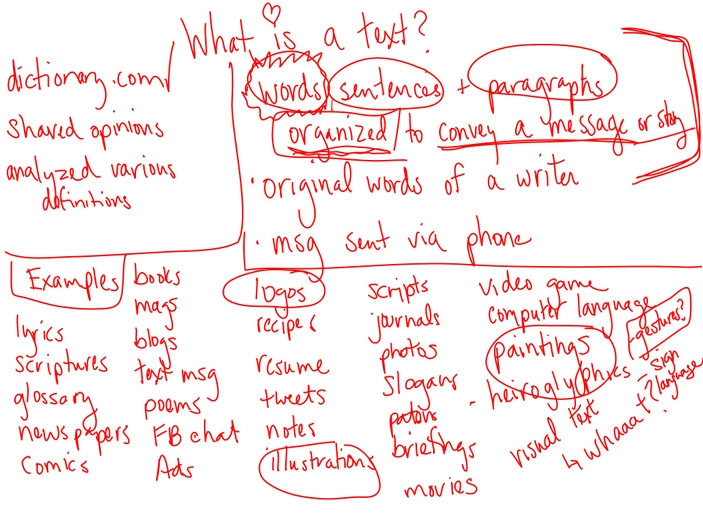 What is a text?
dictionary.com
Shared opinions
analyzed various
definitions
words sentences + paragraphs
organized to convey a message or story
· original words of a writer
· msg sent via phone
Examples
lyrics
scriptures
glossary
newspapers
Comics
books
mags
blogs
text msg
poems
FB chat
Ads
logos
recipes
resume
tweets
notes
illustrations
scripts
journals
photos
Slogans
briefings
movies
video game
computer language
paintings
heiroglyphics
visual text
↳ whaaat?
gestures?
- sign
language